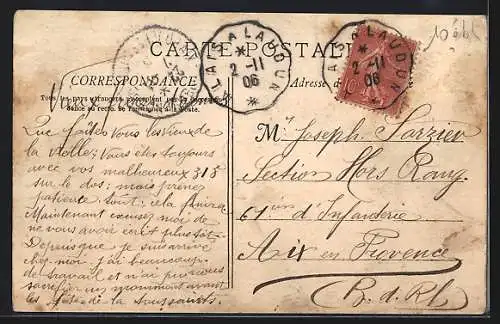 CARTE POSTALE
ALAIS A LAUDUN
2-11
06
A LAUDUN
2-11
06
10
CORRESPONDANCE
Adresse
Tous les pays étrangers n'acceptent pas la correspondance au recto. Se renseigner à la Poste.
Que faites vous les vieux de
la ; Vous êtes toujours
avec vos malheureux 315
sur le dos; mais prenez
patience tout cela finira
Maintenant excusez moi de
ne vous avoir écrit plus tôt.
Depuis que je suis arrivé
chez moi j'ai beaucoup
de travail et n'ai pu vous
sacrifier un moment avant
les fêtes de la toussaints.
Mr Joseph
Section Hors Rang
61me d'Infanterie
Aix en Provence
B. d. Rh.